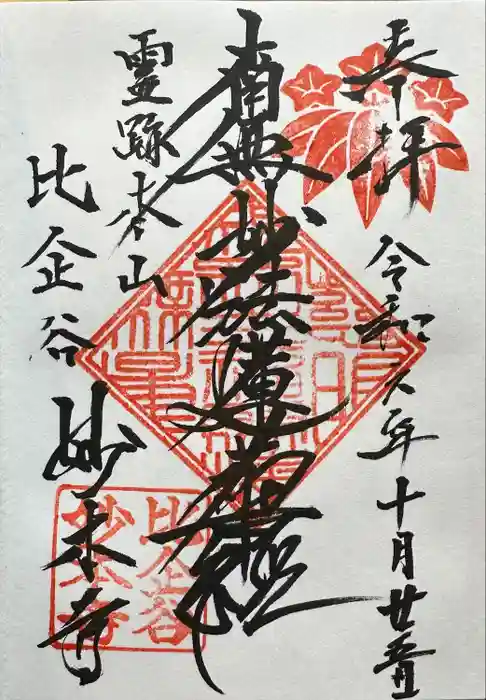 奉拝
令和六年十月廿五日
南無妙法蓮華経
霊跡本山
比企谷
妙本寺
比企谷
妙本寺